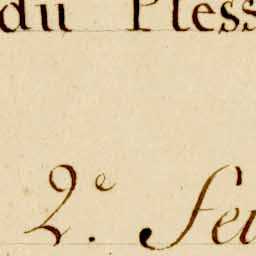 du Pless
2.e Feu